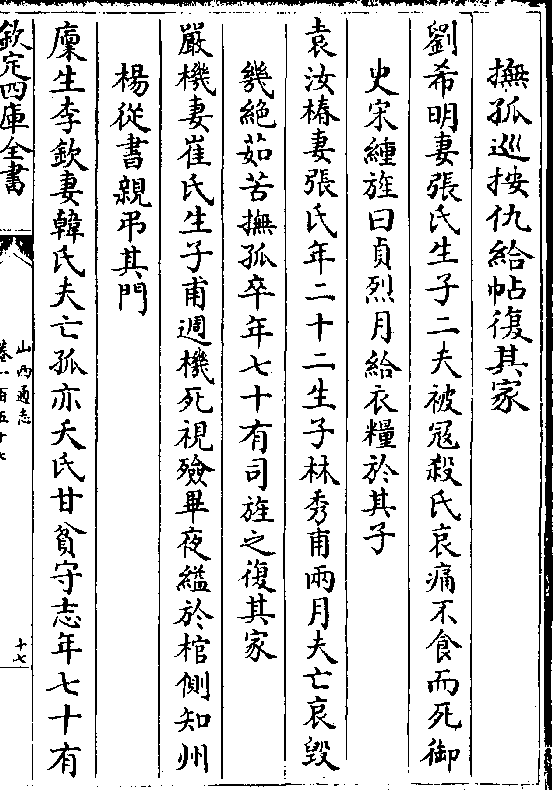 撫孤巡按仇給帖復其家
劉希明妻張氏生子二夫被寇殺氏哀痛不食而死御
史宋纁旌曰貞烈月給衣糧於其子
袁汝椿妻張氏年二十二生子林秀甫兩月夫亡哀毀
幾絶茹苦撫孤卒年七十有司旌之復其家
嚴機妻崔氏生子甫週機死視殮畢夜縊於棺側知州
楊從書親弔其門
廩生李欽妻韓氏夫亡孤亦夭氏甘貧守志年七十有
欽定四庫全書
山西通志
卷一百五十七
十七